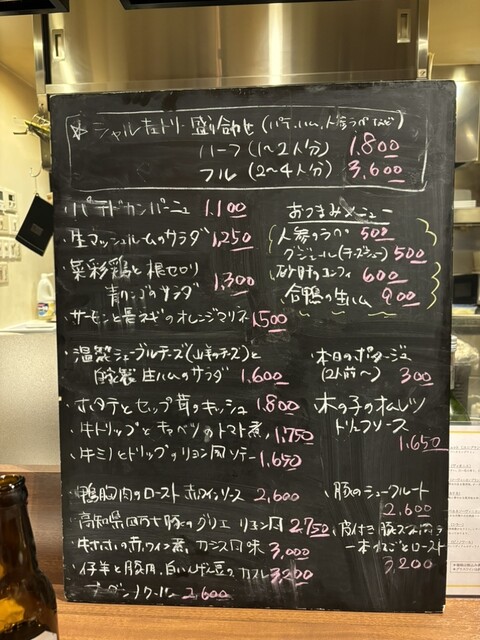 ☆シャルキュトリー盛り合わせ(パテ、ハム、人参ラペなど)
ハーフ(1〜2人分) 1,800
フル(2〜4人分) 3,600
・パテドカンパーニュ 1,100
・生マッシュルームのサラダ 1,250
・菜彩鶏と根セロリ
青リンゴのサラダ 1,300
・サーモンと長ネギのオレンジマリネ 1,500
・温製シェーブルチーズ(山羊のチーズ)と
自家製生ハムのサラダ 1,600
・ホタテとセップ茸のキッシュ 1,800
・牛トリップとキャベツのトマト煮 1,750
・牛ミノとトリップのリヨン風ソテー 1,650
・鴨胸肉のロースト 赤ワインソース 2,600
・高知県四万十豚のグリエ リヨン風 2,750
・牛ホホの赤ワイン煮 カシス風味 3,000
・仔羊と豚肉、白いんげん豆のカスレ 3,200
2,600
おつまみメニュー
人参のラペ 500
グジェール(チーズシュー) 500
砂肝のコンフィ 600
合鴨の生ハム 900
・本日のポタージュ
(2人前〜) 300
木の子のオムレツ
トリュフソース
1,650
・豚のシュークルート
2,600
・皮付き豚スネ肉
一本まるごとロースト
3,200